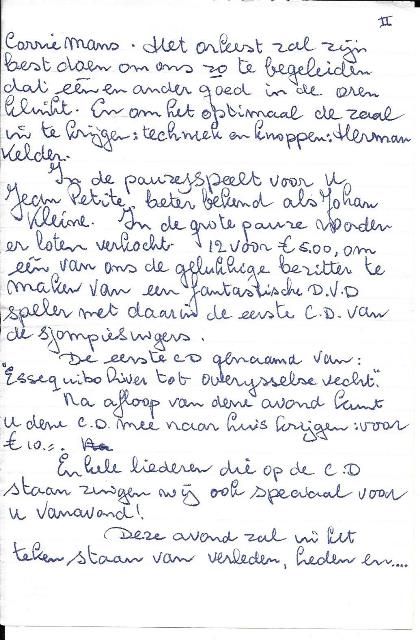 II
Corrie Mans. Het orkest zal zijn
best doen om ons zo te begeleiden
dat één en ander goed in de oren
klinkt. En om het optimaal de zaal
in te krijgen: techniek en knoppen: Herman
Kelder.
In de pauze speelt voor u
Jean Petite, beter bekend als Johan
Kleine. In de grote pauze worden
er loten verkocht 12 voor € 5.00, om
één van ons de gelukkige bezitter te
maken van een fantastische D.V.D
speler met daarin de eerste C.D. van
de sjompiesingers.
De eerste CD genaamd van:
"Essequibo River tot Overijsselse Vecht".
Na afloop van deze avond kunt
u deze C.D. mee naar huis krijgen: voor
€ 10.=.
Enkele liederen die op de C.D
staan zingen wij ook speciaal voor
u vanavond!
Deze avond zal in het
teken staan van verleden, heden en....